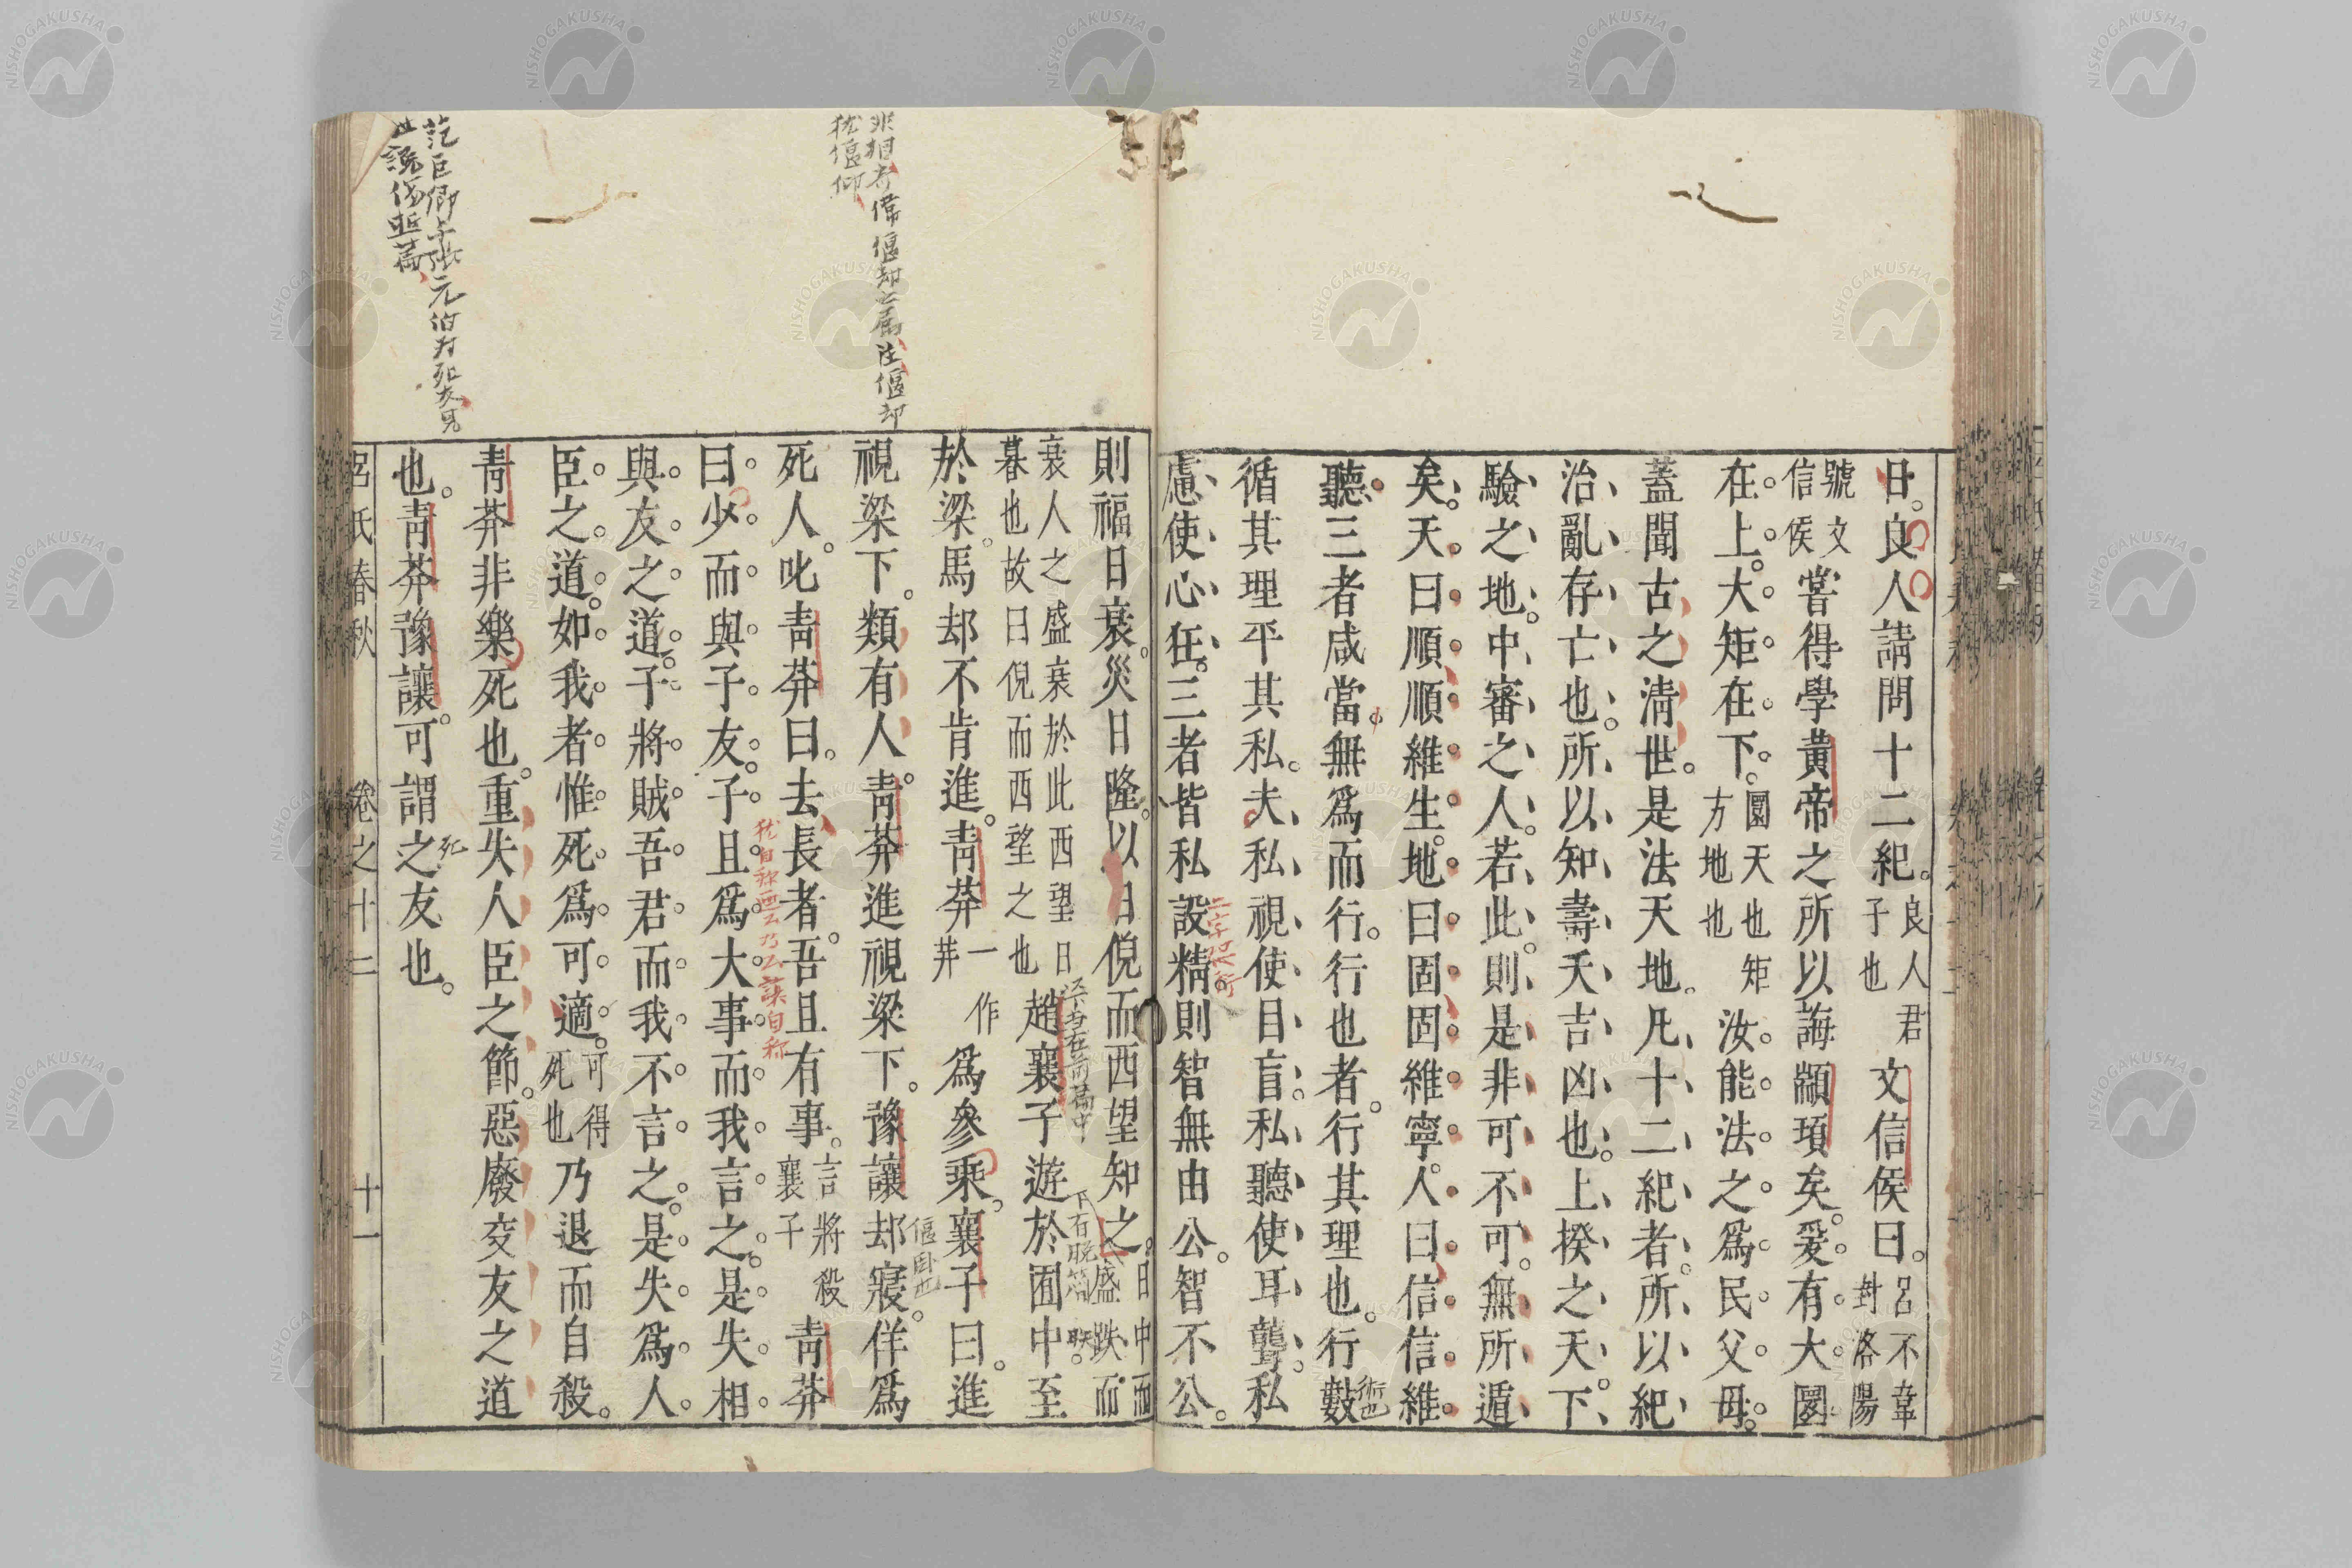 日。良人請問十二紀。良人君子也文信侯曰。呂不韋封洛陽
號文信侯嘗得學黃帝之所以誨顓頊矣。爰有大圜
在上。大矩在下。圜天也矩方地也汝能法之。爲民父母。
蓋聞古之淸世。是法天地。凡十二紀者。所以紀
治亂存亡也。所以知壽夭吉凶也。上揆之天。下
驗之地。中審之人。若此。則是非可不可。無所遁
矣。天曰順。順維生。地曰固。固維寧。人曰信。信維
聽。三者咸當。無爲而行。行也者。行其理也。行數
術也
循其理平其私。夫私視使目盲。私聽使耳聾。私
慮使心狂。三者皆私設精則智無由公。智不公。
則福日衰。災日隆。以日倪而西望知之。日中而盛跌而
衰人之盛衰於此西望日暮也故曰倪而西望之也趙襄子遊於囿中。至
於梁。馬却不肯進。靑荓一作荓爲參乘。襄子曰。進
視梁下。類有人。靑荓進視梁下。豫讓却寢。佯爲
偃臥也
死人。叱靑荓曰。去長者。吾且有事。言將殺襄子靑荓
曰。少而與子友。子且爲大事。而我言之。是失相
與友之道。子將賊吾君。而我不言之。是失爲人
臣之道。如我者惟死爲可適。可得死也乃退而自殺。
靑荓非樂死也。重失人臣之節。惡廢交友之道
也。靑荓豫讓。可謂之友也。
死
呂氏春秋 卷之十二 十一
非相奇偉偃却之屬注偃却
猶偃仰
范巨卿与張元伯為死友見
世說傷逝篇
NISHOGAKUSHA